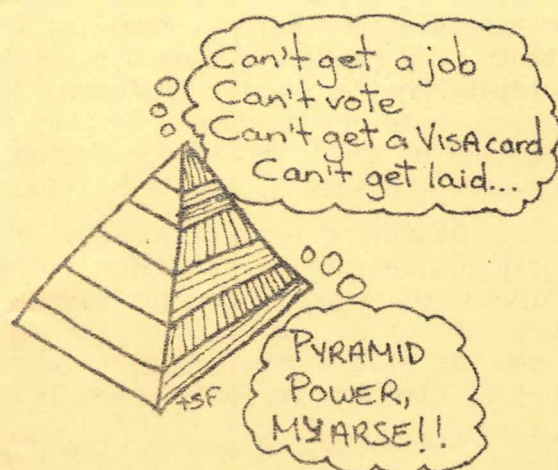 Can't get a job
Can't vote
Can't get a VISA card
Can't get laid...
PYRAMID
POWER,
MY ARSE!!